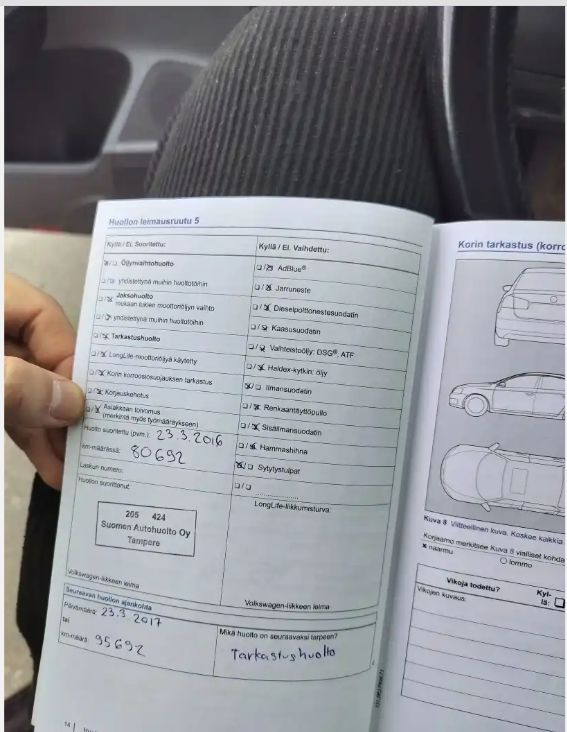 Huollon leimausruutu 5
Kyllä / Ei, Suoritettu:
Öljynvaihtohuolto
yhdistettynä muihin huoltotöihin
Jaksohuolto
mukaan lukien moottoriöljyn vaihto
yhdistettynä muihin huoltotöihin
Tarkastushuolto
LongLife-moottoriöljyä käytetty
Korin korroosiosuojauksen tarkastus
Korjauskehotus
Asiakkaan toivomus
(merkintä myös työmääräykseen)
Huolto suoritettu (pvm.): 23.3.2016
km-määrässä: 80692
Laskun numero:
Huollon suorittanut:
205 424
Suomen Autohuolto Oy
Tampere
Volkswagen-liikkeen leima
Kyllä / Ei, Vaihdettu:
AdBlue®
Jarruneste
Dieselpolttonestesuodatin
Kaasusuodatin
Vaihteistoöljy: DSG®, ATF
Haldex-kytkin: öljy
Ilmansuodatin
Renkaantäyttöpullo
Sisäilmansuodatin
Hammashihna
Sytytystulpat
LongLife-liikkumisturva:
Volkswagen-liikkeen leima
Seuraavan huollon ajankohta
Päivämäärä: 23.3.2017
tai
km-määrä: 95692
Mikä huolto on seuraavaksi tarpeen?
Tarkastushuolto
14
Korin tarkastus (korro
Kuva 8 Viitteellinen kuva. Koskee kaikkia
Korjaamo merkitsee Kuva 8 vialliset kohda
x naarmu
O lommo
Vikoja todettu?
Kyl-
lä:
Vikojen kuvaus: